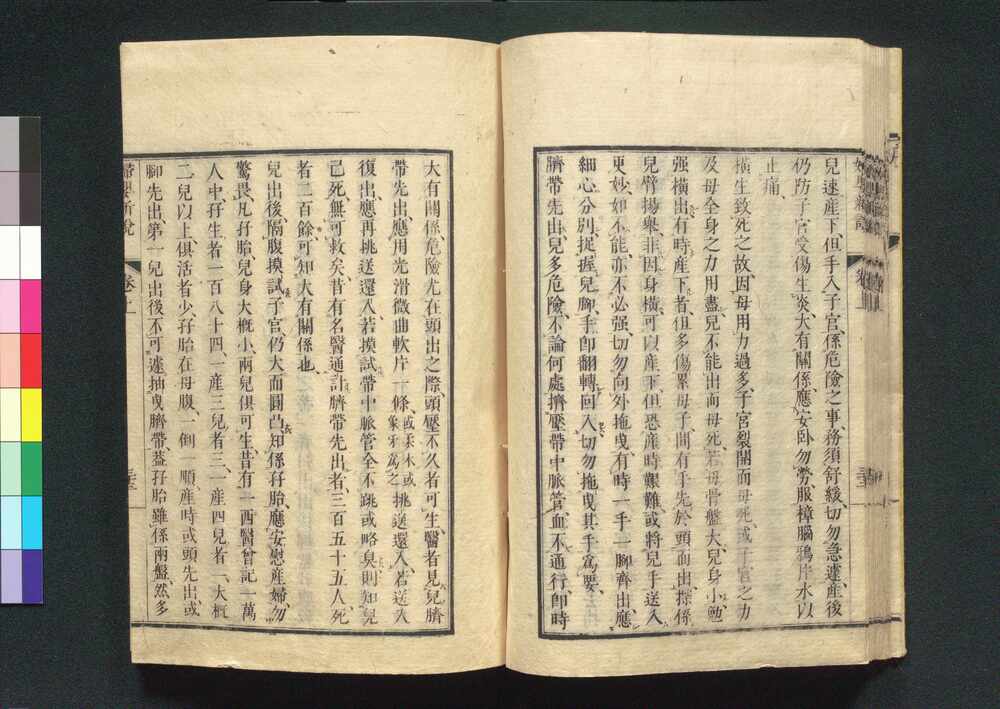 兒速產下、但手入子宮、係危險之事、務須舒緩、切勿急遽、產後
仍防子宮受傷生炎、大有關係、應安臥勿勞、服樟腦鴉片水以
止痛、
橫生致死之故、因母用力過多、子宮裂開而母死、或子宮之力
及母全身之力用盡、兒不能出而母死、若母骨盤大、兒身小、勉
强橫出、有時產下者、但多傷累母子、間有手先於頭而出、探係
兒臂揚舉、非因身橫、可以產下、但恐產時艱難、或將兒手送入
更妙、如不能、亦不必强、切勿向外拖曳、有時一手一腳齊出、應
細心分別、捉握兒腳、手卽翻轉回入、切勿拖曳其手爲要、
臍帶先出、兒多危險、不論何處擠壓、帶中脈管、血不通行、卽時
大有關係、危險尤在頭出之際、頭壓不久者可生、醫者見兒臍
帶先出、應用光滑微曲軟片一條、或柔木或象牙爲之挑送還入、若送入
復出、應再挑送還入、若摸試帶中脈管全不跳、或略臭、則知兒
已死、無可救矣、昔有名醫通計臍帶先出者、三百五十五人、死
者二百餘、可知大有關係也、
兒出後、隔腹摸試子宮、仍大而圓凸、知係孖胎、應安慰產婦、勿
驚畏、凡孖胎、兒身大槪小、兩兒俱可生、昔有一西醫曾記一萬
人中、孖生者一百八十四、一產三兒者三、一產四兒者一、大槪
二兒以上俱活者少、孖胎在母腹、一倒一順、產時或頭先出、或
腳先出、第一兒出後、不可遽抽曳臍帶、葢孖胎雖係兩盤、然多
婦嬰新說
卷上